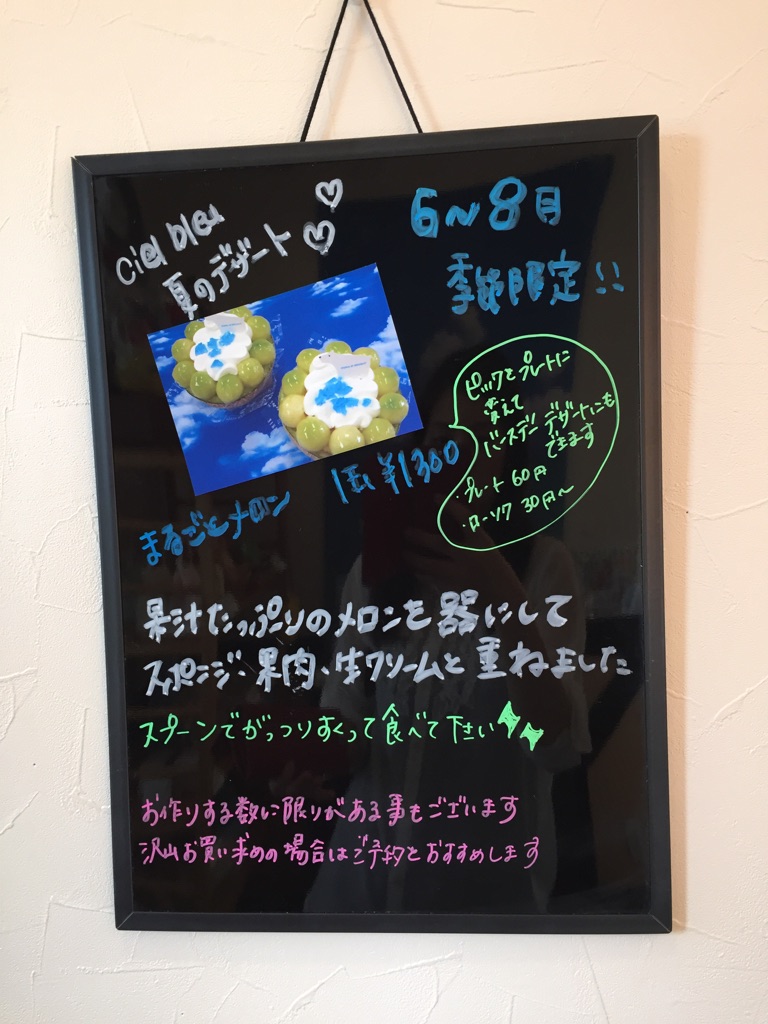 Ciel bleu
夏のデザート
6〜8月
季節限定!!
ピックをプレートに
変えて
バースデーデザートにも
できます
・プレート 60円
・ローソク 30円〜
1玉 ¥1300
まるごとメロン
果汁たっぷりのメロンを器にして
スポンジ、果肉、生クリームと重ねました
スプーンでがっつりすくって食べて下さい
お作りする数に限りがある事もございます
沢山お買い求めの場合はご予約をおすすめします